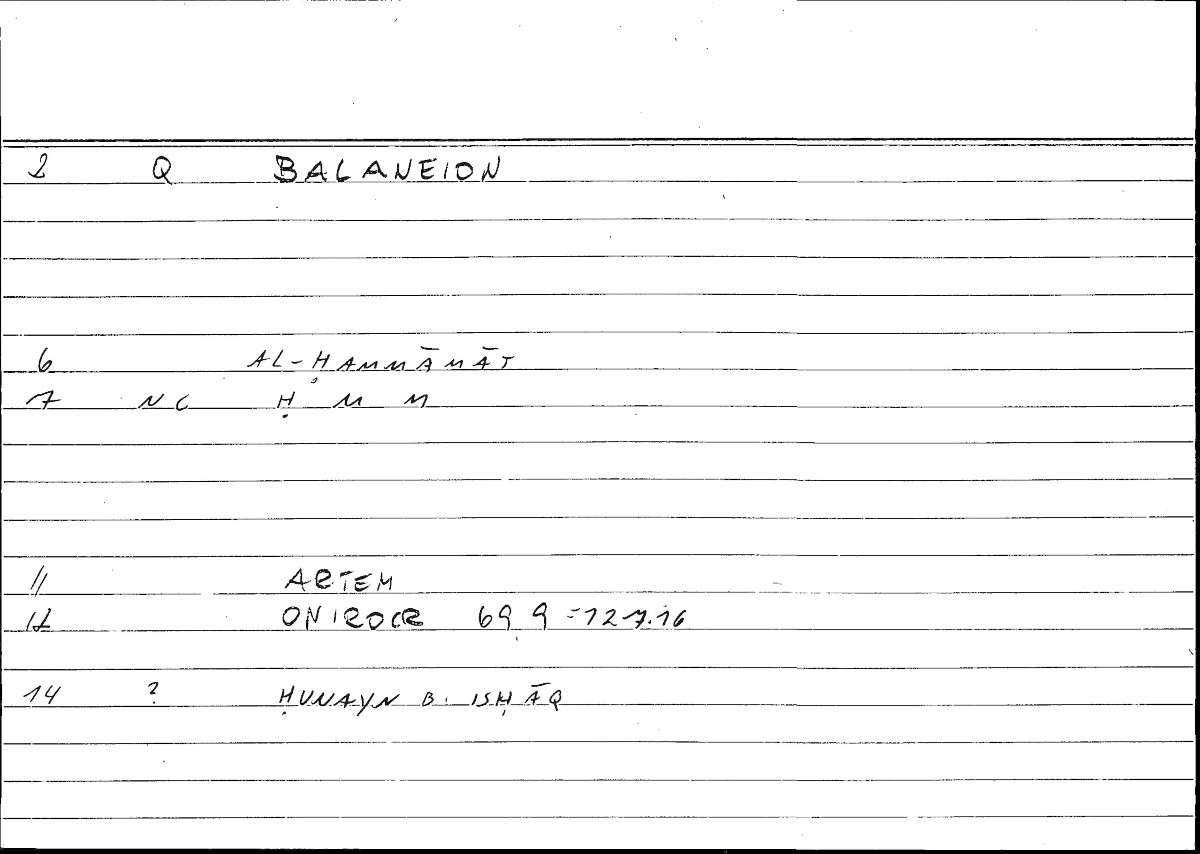 2 Q BALANEION
6 AL-ḤAMMĀMĀT
7 NC Ḥ M M
11 ARTEM
12 ONIROCR 69,9 = 127.16
14 ? ḤUNAYN B. ISḤĀQ